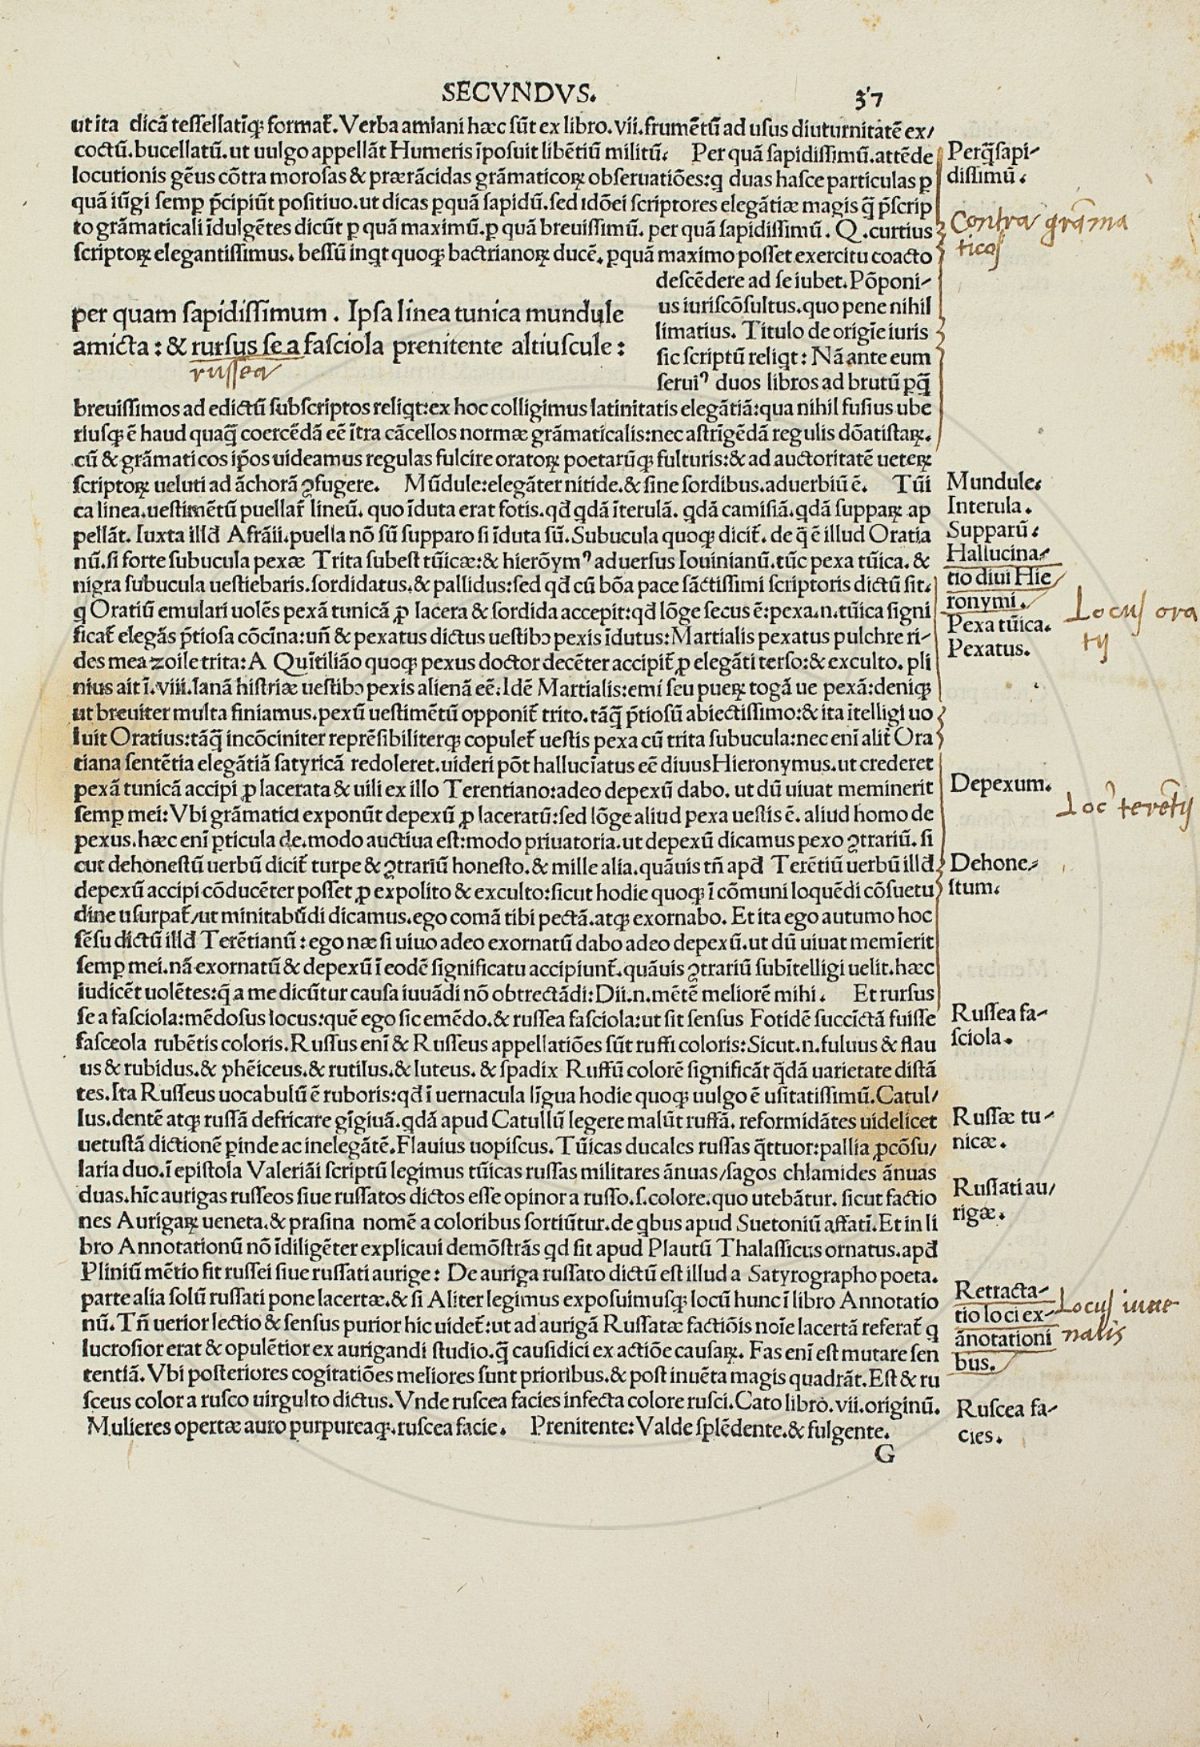 SECVNDVS.
37
ut ita dicã teſſellatiq; format̃. Verba amiani hæc sũt ex libro. vii. frumẽtũ ad uſus diuturnitatẽ ex/
coctũ. bucellatũ. ut uulgo appellãt Humeris ĩpoſuit libẽtiũ militũ: Per quã ſapidiſſimũ. attẽde
locutionis gẽus cõtra moroſas & prærãcidas grãmaticoꝝ obſeruatiões: q duas haſce particulas ꝑ
quã iũgi ſemꝑ p̃cipiũt poſitiuo. ut dicas ꝑquã ſapidũ. ſed idõei ſcriptores elegãtiæ magis q̃ p̃ſcrip
to grãmaticali ĩdulgẽtes dicũt ꝑ quã maximũ. ꝑ quã breuiſſimũ. per quã ſapidiſſimũ. Q. curtius
ſcriptoꝝ elegantiſſimus. beſſũ inqt quoq; bactrianoꝝ ducẽ. ꝑquã maximo poſſet exercitu coacto
deſcẽdere ad ſe iubet. Põponi-
us iuriſcõſultus. quo pene nihil
limatius. Titulo de origĩe iuris
ſic ſcriptũ reliqt: Nã ante eum
ſeruiꝰ duos libros ad brutũ ꝑq̃
per quam ſapidiſſimum. Ipſa linea tunica mundule
amicta: & rurſus ſe a faſciola prenitente altiuſcule:
russea
breuiſſimos ad edictũ ſubſcriptos reliqt: ex hoc colligimus latinitatis elegãtiã: qua nihil fuſius ube
riuſq; ẽ haud quaq̃ coercẽdã eẽ ĩtra cãcellos normæ grãmaticalis: nec aſtrĩgẽdã regulis dõatiſtaꝝ.
cũ & grãmaticos ip̃os uideamus regulas fulcire oratoꝝ poetarũq; fulturis: & ad auctoritatẽ ueteꝝ
ſcriptoꝝ ueluti ad ãchorã ꝯfugere. Mũdule: elegãter nitide. & ſine ſordibus. aduerbiũ ẽ. Tũi
ca linea. ueſtimẽtũ puellar̃ lineũ. quo ĩduta erat fotis. qd̃ qdã ĩterulã. qdã camiſiã. qdã ſuppaꝝ ap
pellãt. Iuxta illd̃ Afrãii. puella nõ sũ ſupparo ſi ĩduta sũ. Subucula quoq; dicit̃. de q̃ ẽ illud Oratia
nũ. ſi forte ſubucula pexæ Trita ſubeſt tũicæ: & hierõymꝰ aduerſus Iouinianũ. tũc pexa tũica. &
nigra ſubucula ueſtiebaris. ſordidatus. & pallidus: ſed qd̃ cũ bõa pace sãctiſſimi ſcriptoris dictũ ſit.
q Oratiũ emulari uolẽs pexã tunicã ꝓ lacera & ſordida accepit: qd̃ lõge ſecus ẽ: pexa. n. tũica ſigni
ficat̃ elegãs p̃tioſa cõcina: uñ & pexatus dictus ueſtibꝰ pexis ĩdutus: Martialis pexatus pulchre ri-
des mea zoile trita: A Quĩtilião quoq; pexus doctor decẽter accipit̃ ꝓ elegãti terſo: & exculto. pli
nius ait ĩ. viii. Ianã hiſtriæ ueſtibꝰ pexis alienã eẽ. Idẽ Martialis: emi ſeu pueꝝ togã ue pexã: deniq;
ut breuiter multa finiamus. pexũ ueſtimẽtũ opponit̃ trito. tãq̃ p̃tioſũ abiectiſſimo: & ita ĩtelligi uo
luit Oratius: tãq̃ incõciniter reprẽſibiliterq; copulet̃ ueſtis pexa cũ trita ſubucula: nec enĩ alit̃ Ora
tiana ſentẽtia elegãtiã ſatyricã redoleret. uideri põt hallucĩatus eẽ diuus Hieronymus. ut crederet
pexã tunicã accipi ꝓ lacerata & uili ex illo Terentiano: adeo depexũ dabo. ut dũ uiuat meminerit
ſemꝑ mei: Vbi grãmatici exponũt depexũ ꝓ laceratũ: ſed lõge aliud pexa ueſtis ẽ. aliud homo de
pexus. hæc enĩ p̃ticula de. modo auctiua eſt: modo priuatoria. ut depexũ dicamus pexo ꝯtrariũ. ſi
cut dehoneſtũ uerbũ dicit̃ turpe & ꝯtrariũ honeſto. & mille alia. quãuis tñ apd̃ Terẽtiũ uerbũ illd̃
depexũ accipi cõducẽter poſſet ꝓ expolito & exculto: ſicut hodie quoq; ĩ cõmuni loquẽdi cõſuetu
dine uſurpat̃/ut minitabũdi dicamus. ego comã tibi pectã. atq; exornabo. Et ita ego autumo hoc
ſẽſu dictũ illd̃ Terẽtianũ: ego næ ſi uiuo adeo exornatũ dabo adeo depexũ. ut dũ uiuat memĩerit
ſemꝑ mei. nã exornatũ & depexũ ĩ eodẽ ſignificatu accipiunt̃. quãuis ꝯtrariũ ſubĩtelligi uelit. hæc
iudicẽt uolẽtes: q̃ a me dicũtur cauſa iuuãdi nõ obtrectãdi: Dii. n. mẽtẽ meliorẽ mihi. Et rurſus
ſe a faſciola: mẽdoſus locus: quẽ ego ſic emẽdo. & ruſſea faſciola: ut ſit ſenſus Fotidẽ ſuccĩctã fuiſſe
faſceola rubẽtis coloris. Ruſſus enĩ & Ruſſeus appellatiões sũt ruffi coloris: Sicut. n. fuluus & flau
us & rubidus. & phẽiceus. & rutilus. & luteus. & ſpadix Ruffũ colorẽ ſignificãt qdã uarietate diſtã
tes. Ita Ruſſeus uocabulũ ẽ ruboris: qd̃ ĩ uernacula lĩgua hodie quoq; uulgo ẽ uſitatiſſimũ. Catul/
lus. dentẽ atq; ruſſã defricare gĩgiuã. qdã apud Catullũ legere malũt ruffã. reformidãtes uidelicet
uetuſtã dictionẽ ꝑinde ac inelegãtẽ. Flauius uopiſcus. Tũicas ducales ruſſas q̃ttuor: pallia ꝓcõſu/
laria duo. ĩ epiſtola Valeriãi ſcriptũ legimus tũicas ruſſas militares ãnuas/ſagos chlamides ãnuas
duas. hĩc aurigas ruſſeos ſiue ruſſatos dictos eſſe opinor a ruſſo. ſ. colore. quo utebãtur. ſicut factio
nes Aurigaꝝ ueneta. & praſina nomẽ a coloribus ſortiũtur. de qbus apud Suetoniũ affati. Et in li
bro Annotationũ nõ ĩdiligẽter explicaui demõſtrãs qd ſit apud Plautũ Thalaſſicus ornatus. apd̃
Pliniũ mẽtio fit ruſſei ſiue ruſſati aurige: De auriga ruſſato dictũ eſt illud a Satyrographo poeta.
parte alia ſolũ ruſſati pone lacertæ. & ſi Aliter legimus expoſuimuſq; locũ hunc ĩ libro Annotatio
nũ. Tñ uerior lectio & ſenſus purior hic uidet̃: ut ad aurigã Ruſſatæ factiõis noĩe lacertã referat̃ q
lucroſior erat & opulẽtior ex aurigandi ſtudio. q̃ cauſidici ex actiõe cauſaꝝ. Fas enĩ eſt mutare ſen
tentiã. Vbi poſteriores cogitatiões meliores sunt prioribus. & poſt inuẽta magis quadrãt. Eſt & ru
ſceus color a ruſco uirgulto dictus. Vnde ruſcea facies infecta colore ruſci. Cato libro. vii. originũ.
Mulieres opertæ auro purpureaq;. ruſcea facie. Prenitente: Valde ſplẽdente. & fulgente.
G
Perq̃ſapi-
diſſimũ.
Contra grãma
ticos
Mundule.
Interula.
Supparũ:
Hallucina-
tio diui Hie
ronymi.
Pexa tũica.
Pexatus.
Locus ora
tij
Depexum.
Locꝰ terẽtij
Dehone-
ſtum.
Ruſſea fa-
ſciola.
Ruſſæ tu-
nicæ.
Ruſſati au/
rigæ.
Retracta-
tio loci ex-
ãnotationi
bus.
Locus iuue
nalis
Ruſcea fa-
cies.